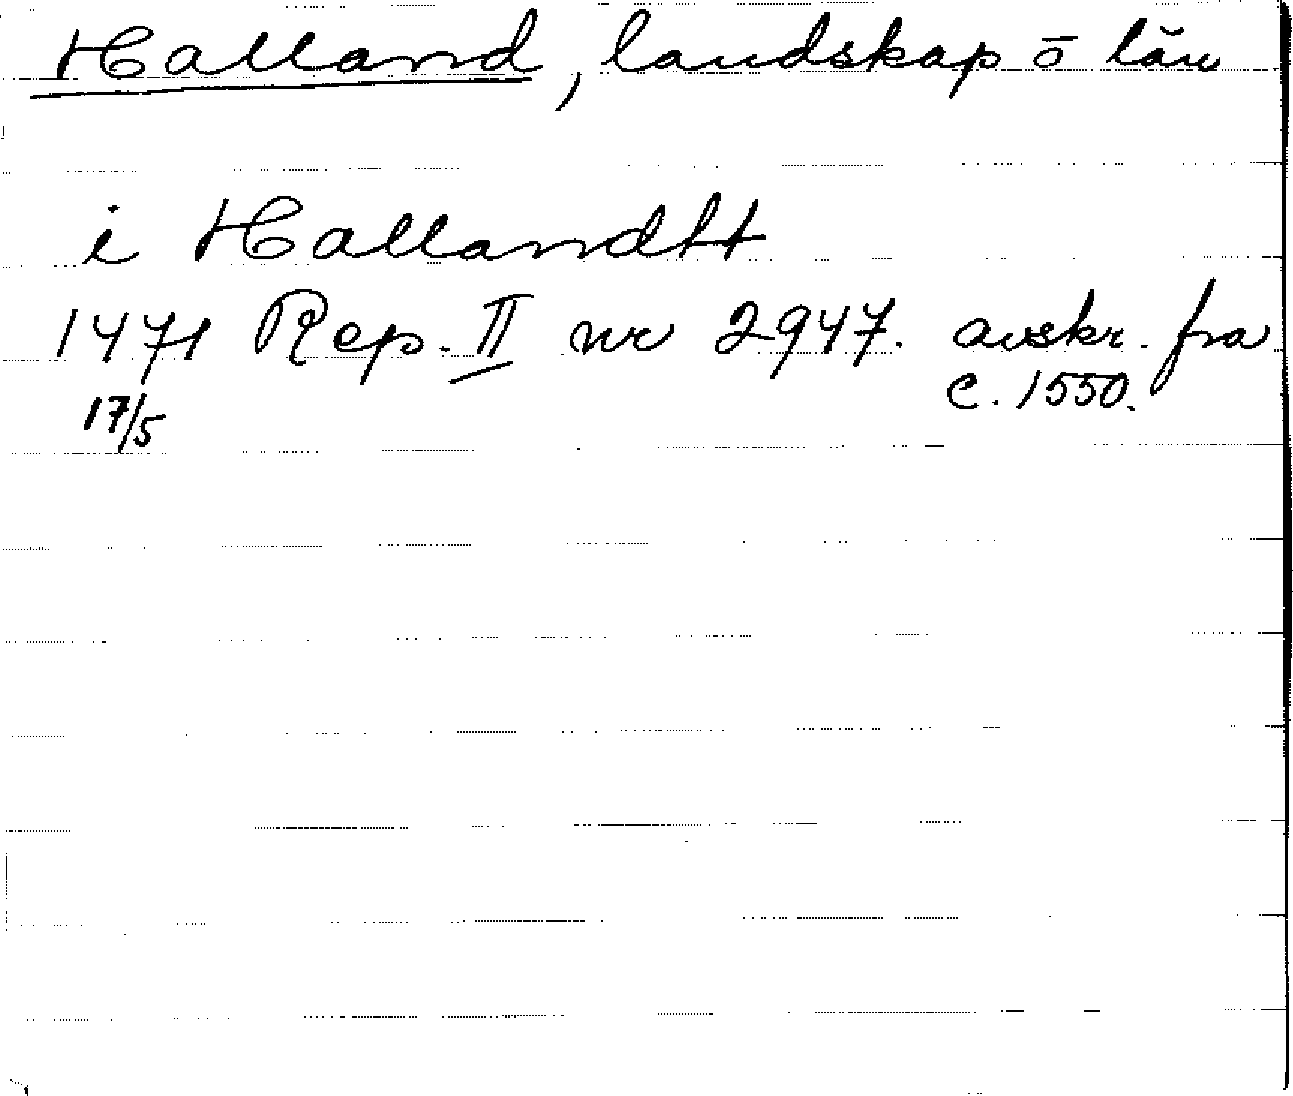 Halland, landskap ō län
i Hallandtt
1471 Rep. II nr 2947. avskr. fra
17/5 c. 1550.